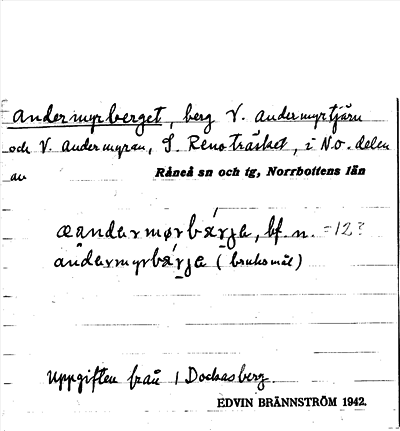 Andermyrberget, berg V. Andermyrtjärn
och V. Andermyran, S. Renoträsket, i N.o. delen
av Råneå sn och tg, Norrbottens län
æandarmørbárja, bf. n. =12?
andarmyrbárja (bruksmål)
Uppgiften från 1 Dockasberg.
EDVIN BRÄNNSTRÖM 1942.